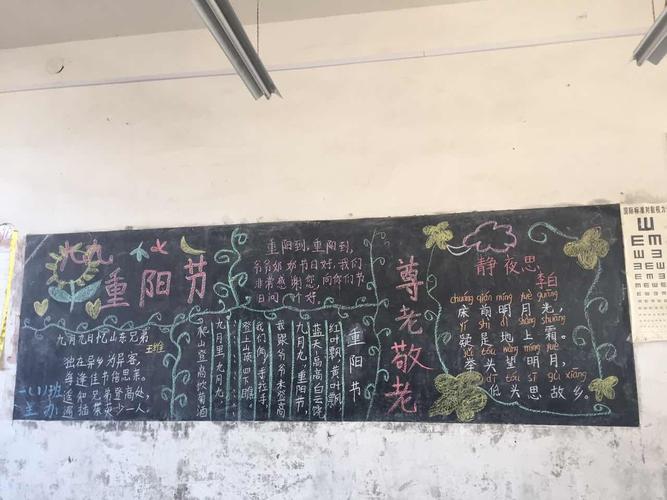 九九
重阳节
九月九日忆山东兄弟
王维
独在异乡为异客,
每逢佳节倍思亲。
遥知兄弟登高处,
遍插茱萸少一人。
一(1)班
主办
重阳到,重阳到,
爷爷奶奶节日好,我们
非常感谢您,向你们节
日问 好。
重阳节
红叶飘,黄叶飘
蓝天高高白云飘
九月九,重阳节,
我跟爷爷来登高
我们俩手拉手
登上山顶四下瞧
九月里,九月九,
爬山登高饮菊酒
尊老敬老
静夜思
李白
chuáng qián míng yuè guāng
床前明月光,
yí shì dì shàng shuāng
疑是地上霜。
jǔ tóu wàng míng yuè
举头望明月,
dī tóu sī gù xiāng
低头思故乡。
国际标准对数视力